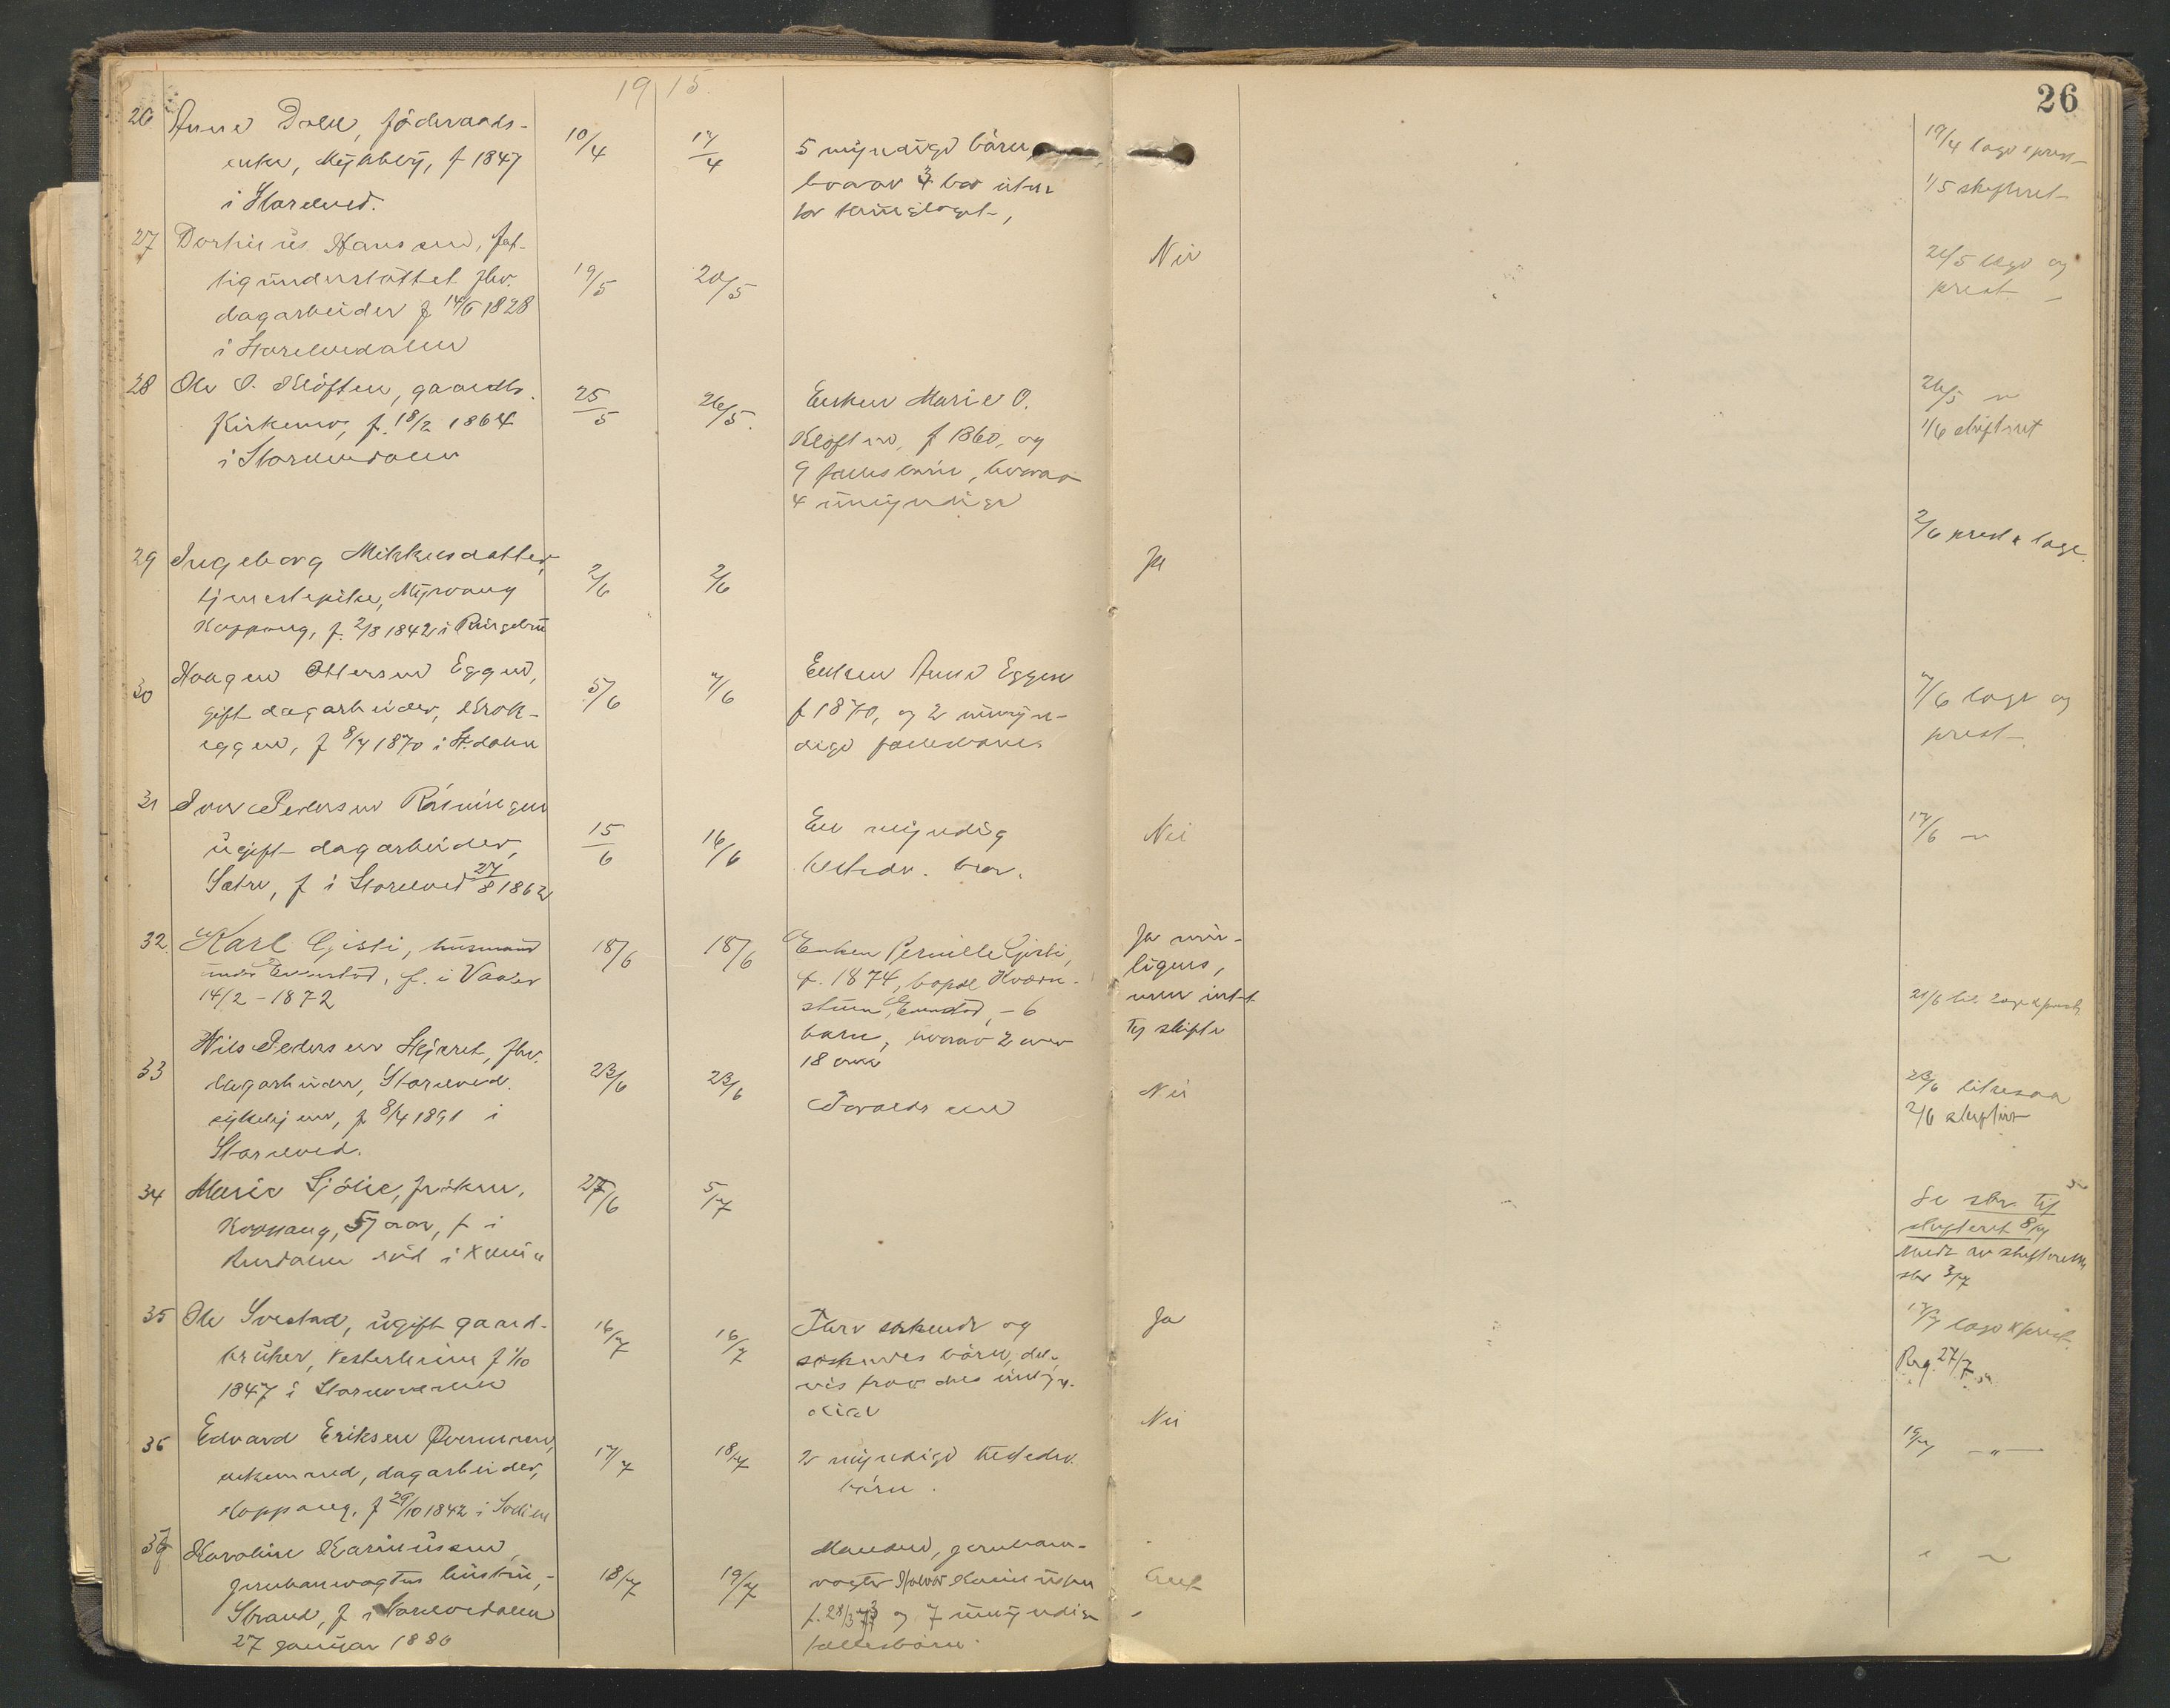 1915.
26
26 Anne Dahl, föderaads-
enke, Myhlbÿ, f 1847
i Storelved.
10/4
17/4
5 mÿndige börn,
hvorav 3 bor uten
for tinglaget,
19/4 lagv & prest
1/5 skifteret
27 Dorthius Hansen, fat-
tigünderstöttet fhv.
dagarbeider f 14/6 1828
i Storelvedalen
19/5
20/5
Nei
21/5 lagv og
prest
28 Ole O. Klöften, gaardbr.
f. 18/2 1864
i Storelvedalen
25/5
26/5.
Enken Marie O.
Klöften, f 1860, og
9 fellesbörn, hvorav
4 ümÿndige
26/5 "
1/6 skifteret
29 Ingeborg Mikkelsdatter,
tjenestepike, Mÿrvang
Koppang, f. 2/8 1842 i Ringebü
2/6
2/6
Ja
2/6 prest & lagv.
30 Haagen Ottersen Eggen,
gift dagarbeider, Krok-
eggen, f 8/7 1870 i St.dalen
5/6
7/6
Enken Anne Eggen
f 1870, og 2 ümÿn-
dige fellesbarn
7/6 lagv og
prest
31 Iver Pedersen
ügift dagarbeider,
Sætre, f i Storelved 27/8 1862
15/6
16/6
En mÿndig
helbdr. bror.
Nei
17/6 "
32. Karl Gjøsti, hüsmand
ünder Evenstad, f. i Vaaler
14/2 - 1872
18/6
18/6
Enken Pernille Gjøsti,
f. 1874, bopæl Kværn-
stüen, Evenstad, - 6
barn, hvorav 2 over
18 aar
Ja
men intet
skifte
21/6 lagv & prest
33 Nils Pedersen Skjæret, fhv.
dagarbeider, Storelved.
sÿkehjem, f 8/4 1891 i
Storelved.
23/6
23/6
Forældrene
Nei
23/6 likesaa
2/6 skifter
34 Marie Sjölie, fröken,
Koppang, 57 aar, f i
Rendalen
27/6
5/7
Se skr. til
skifteret 8/7
Medd. av skifteretten
skr 3/7
35 Ole Svestad, ügift gaard-
brüker, Vesterheim f 1/10
1847 i Storelvedalen
16/7
16/7
Flere söskende og
söskendes börn, del-
vis
Ja
17/7 lagv & prest.
Reg. 27/7
36 Edvard Eriksen
enkemand, dagarbeider,
Koppang, f 29/10 1842 i Sverige
17/7
18/7
2 mÿndige
börn.
Nei
19/7 - " -
37 Karoline Karinüssen,
jernbanevogters hüstrü,
Strand, f i Storelvedalen
27 janüar 1886
18/7
19/7
Manden, jernbane-
vogter Halvor Karinüssen
f. 28/3 73 og 7 ümÿndige
fellesbörn.
" "